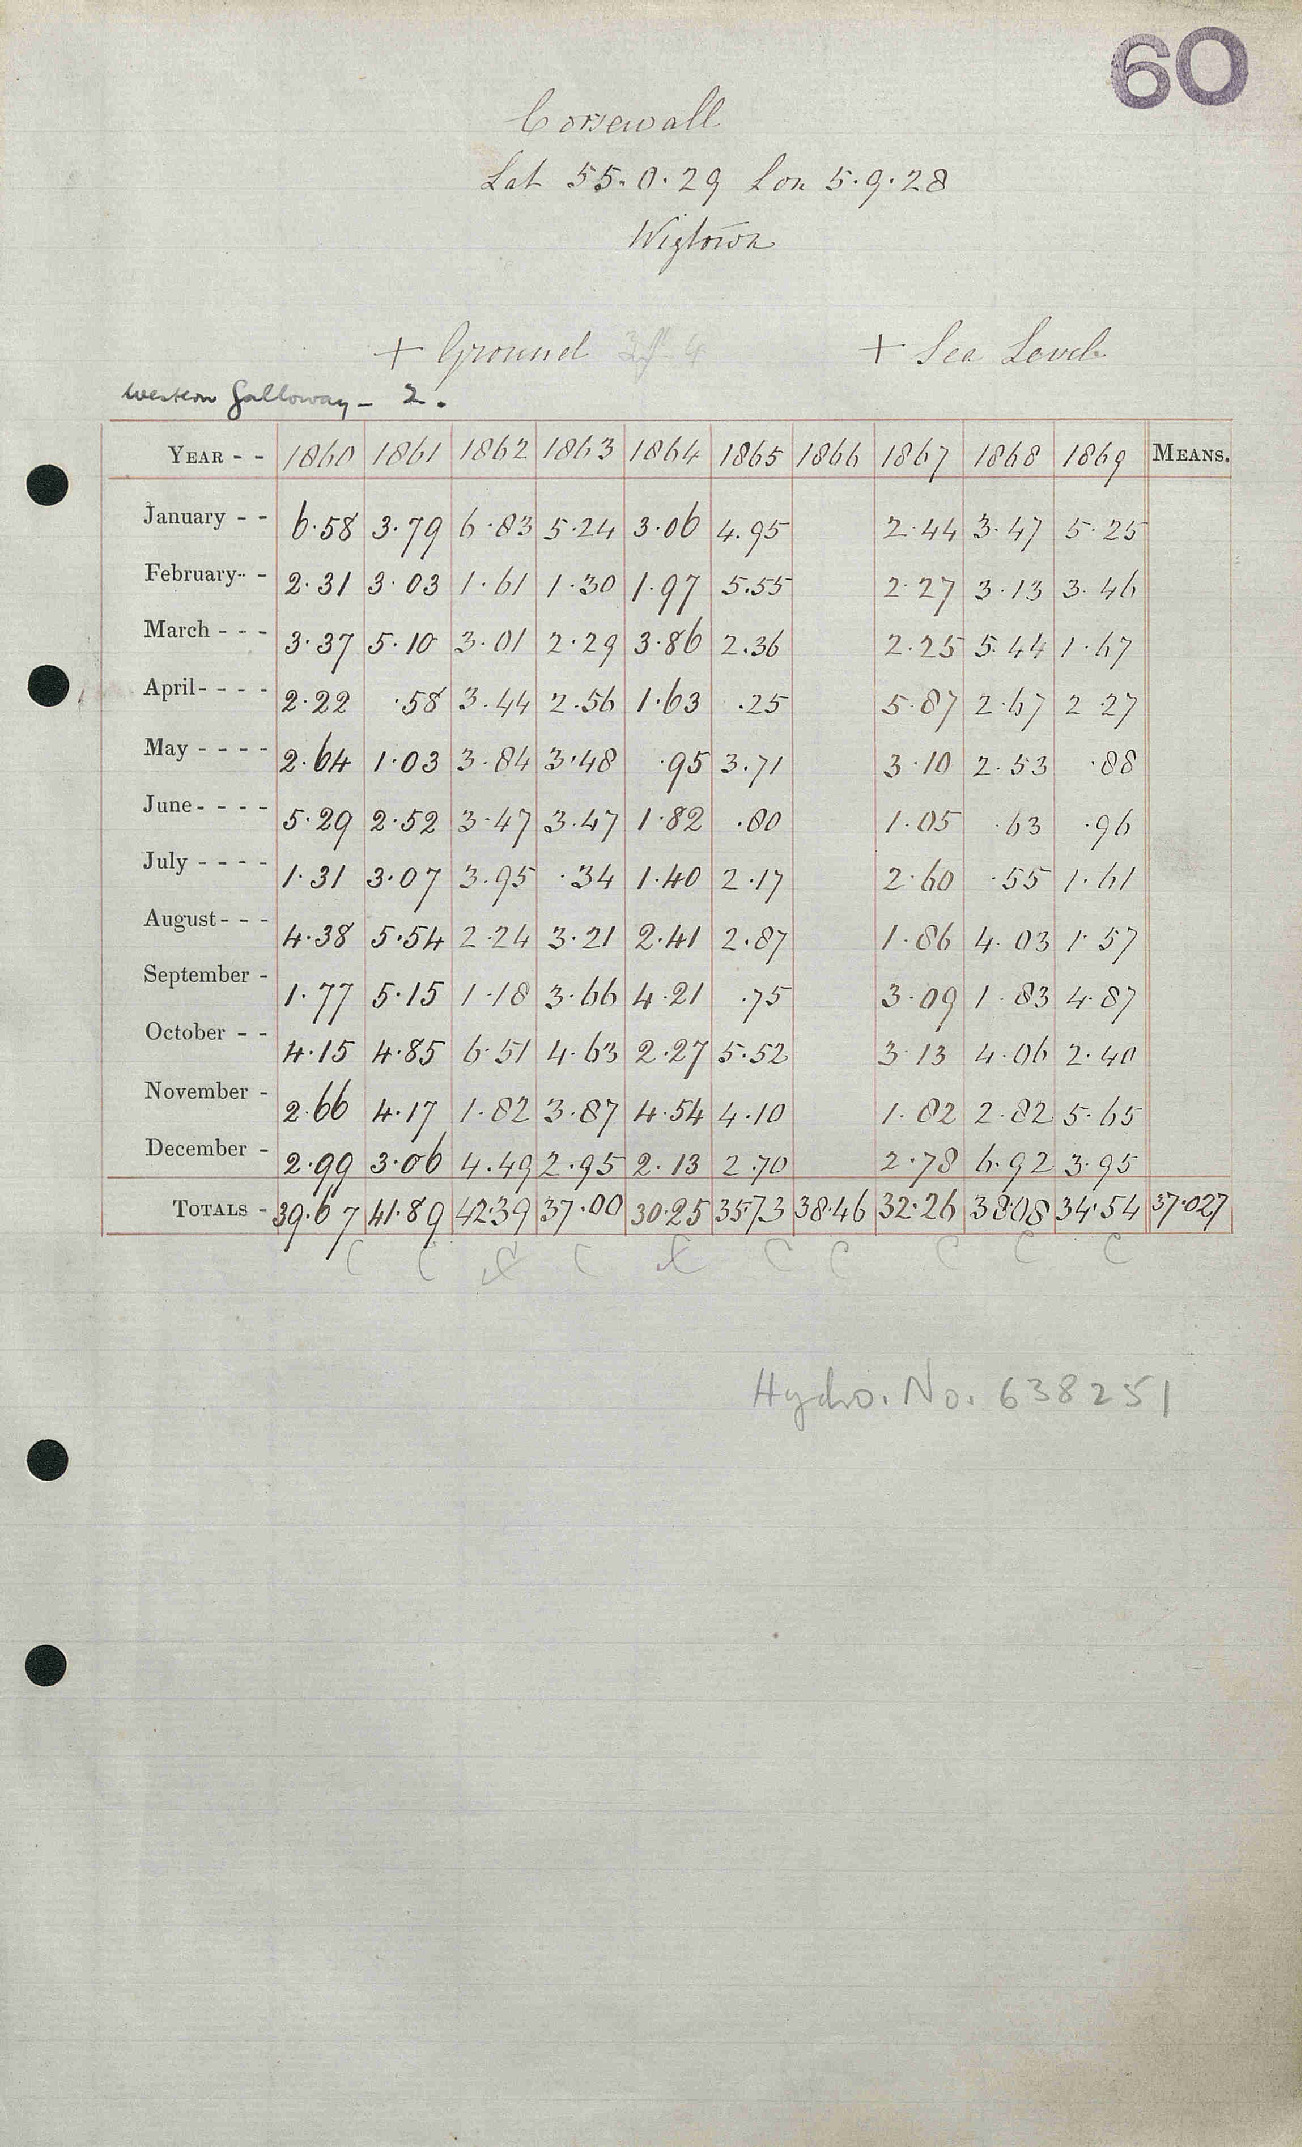 60
Corsewall
Lat 55.0.29 Lon 5.9.28
Wigtown
+ Ground + Sea Level
Western Galloway - 2.
YEAR - - 1860 1861 1862 1863 1864 1865 1866 1867 1868 1869 MEANS.
January - - 6.58 3.79 6.83 5.24 3.06 4.95 2.44 3.47 5.25
February - - 2.31 3.03 1.61 1.30 1.97 5.55 2.27 3.13 3.46
March - - - 3.37 5.10 3.01 2.29 3.86 2.36 2.25 5.44 1.67
April - - - - 2.22 .58 3.44 2.56 1.63 .25 5.87 2.67 2.27
May - - - - 2.64 1.03 3.84 3.48 .95 3.71 3.10 2.53 .88
June - - - - 5.29 2.52 3.47 3.47 1.82 .80 1.05 .63 .96
July - - - - 1.31 3.07 3.95 .34 1.40 2.17 2.60 .55 1.61
August - - - 4.38 5.54 2.24 3.21 2.41 2.87 1.86 4.03 1.57
September - 1.77 5.15 1.18 3.66 4.21 .75 3.09 1.83 4.87
October - - 4.15 4.85 6.51 4.63 2.27 5.52 3.13 4.06 2.40
November - 2.66 4.17 1.82 3.87 4.54 4.10 1.82 2.82 5.65
December - 2.99 3.06 4.49 2.95 2.13 2.70 2.78 6.92 3.95
TOTALS - 39.67 41.89 42.39 37.00 30.25 35.73 38.46 32.26 38.08 34.54 37.027
C C C C C C C C C C
Hydro. No. 638251